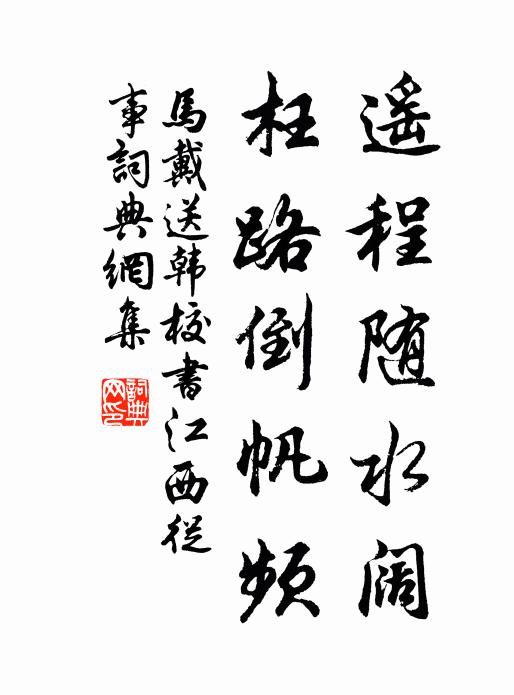 遥程随水阔
枉路倒帆频
馬戴送韩校書江西從
事詞典網集
詞典
网印